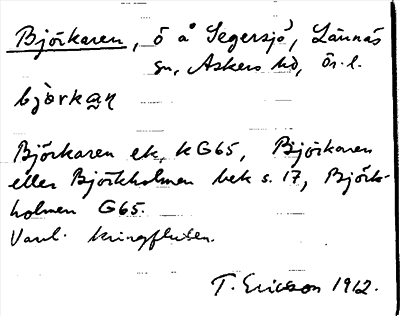 Björkaren, ö å Segersjö, Lännäs
sn, Askers hd, Ör. l.
bjö̀rkaṇ
Björkaren ek, k G65, Björkaren
eller Björkholmen bek s. 17, Björk-
holmen G65.
Vanl. kringfluten.
T. Ericson 1912.